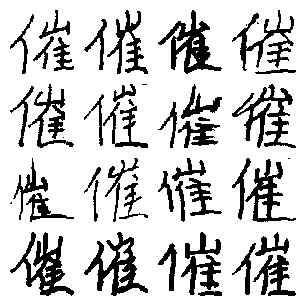 催催催催
催催催催
催催催催
催催催催